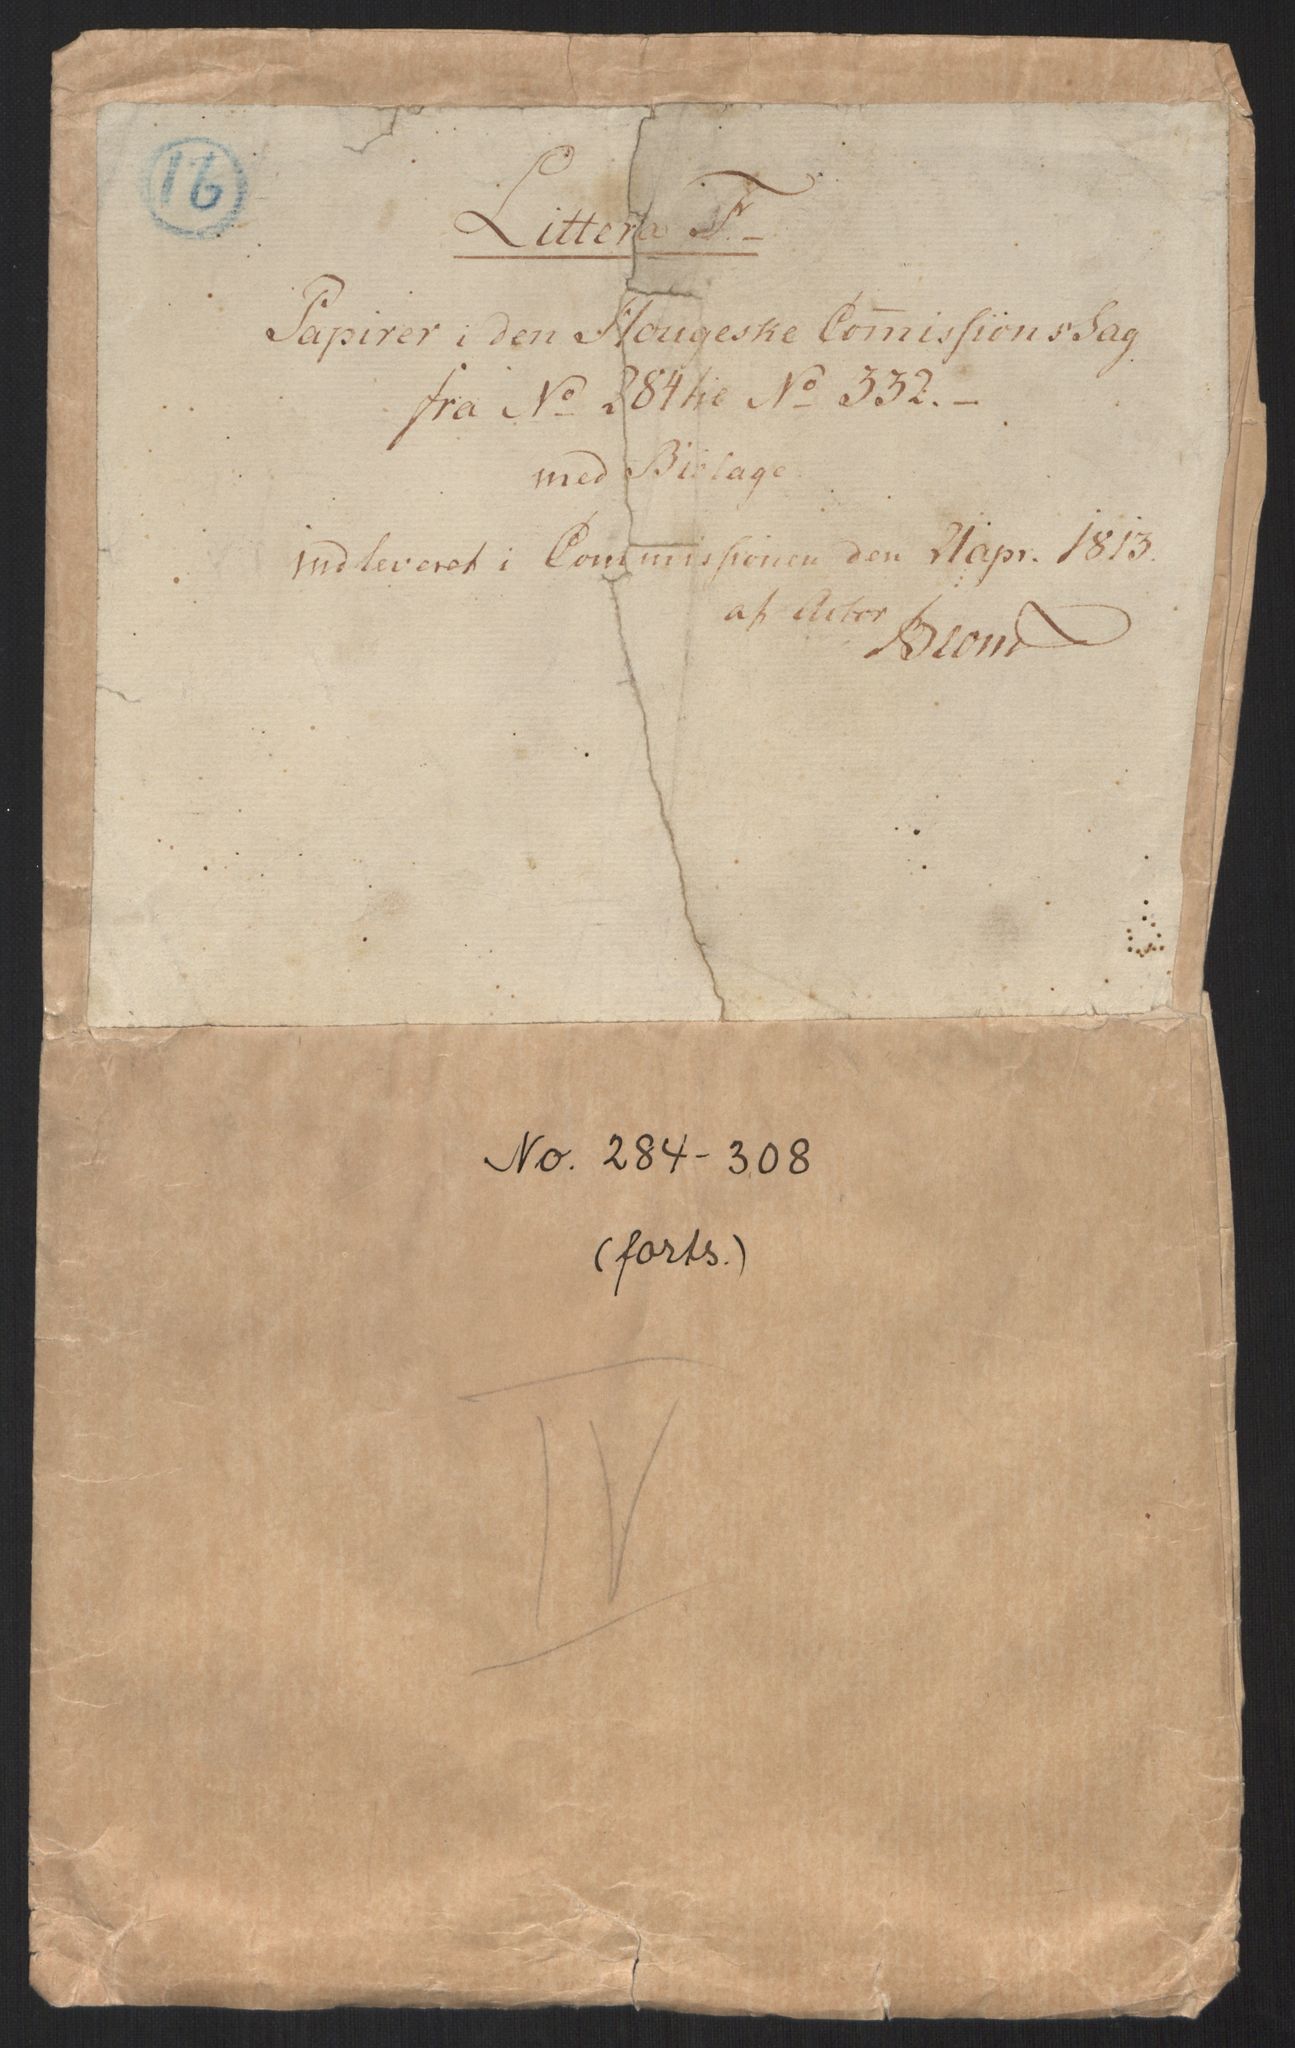 16
Littera F.
Papirer i den Hougeske Com̄issions Sag
fra No 284 til No 332.
med Bielage
indleveret i Commissionen den 21 apr. 1813.
af Actor
Blom
No. 284-308
(forts.)
IV